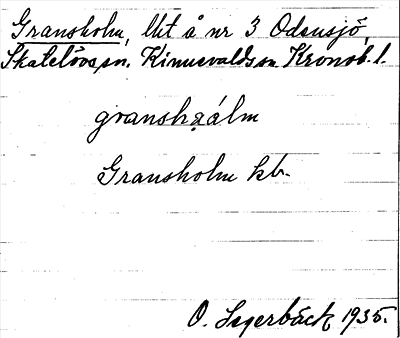 Gransholm, lht å nr 3 Odensjö,
Skatelövs sn. Kinnevalds hd Kronob. l.
granshǫ̀álm
Gransholm kb.
O. Segerbäck 1935.